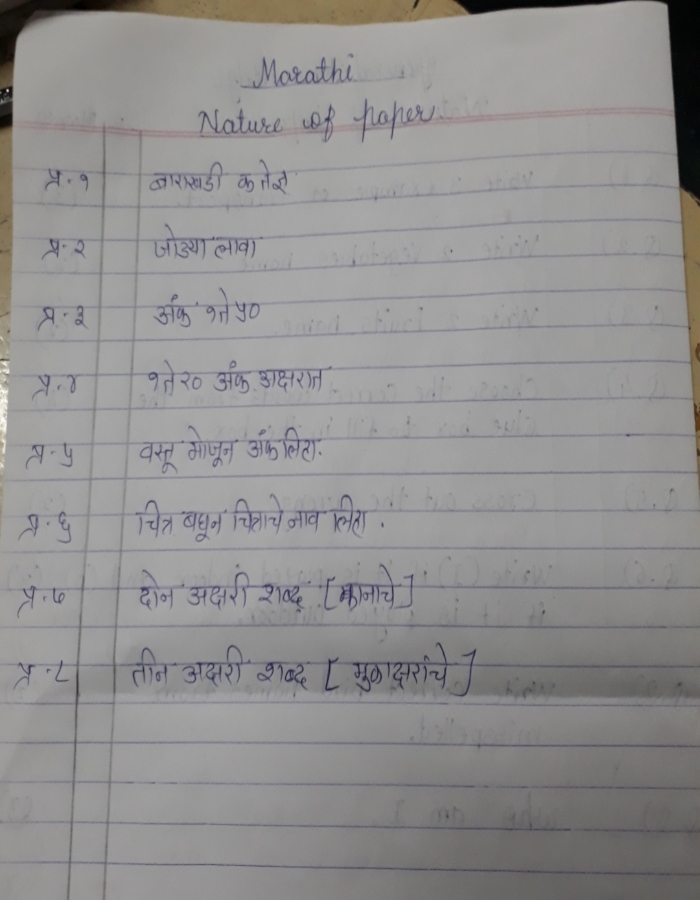 Marathi
Nature of paper
प्र.१ बाराखडी क ते ज्ञ
प्र.२ जोड्या लावा
प्र.३ अंक १ ते ५०
प्र.४ १ ते २० अंक अक्षरात
प्र.५ वस्तू मोजून अंक लिहा.
प्र.६ चित्र बघून चित्राचे नाव लिहा.
प्र.७ दोन अक्षरी शब्द [कानाचे]
प्र.८ तीन अक्षरी शब्द [मुळाक्षरांचे]